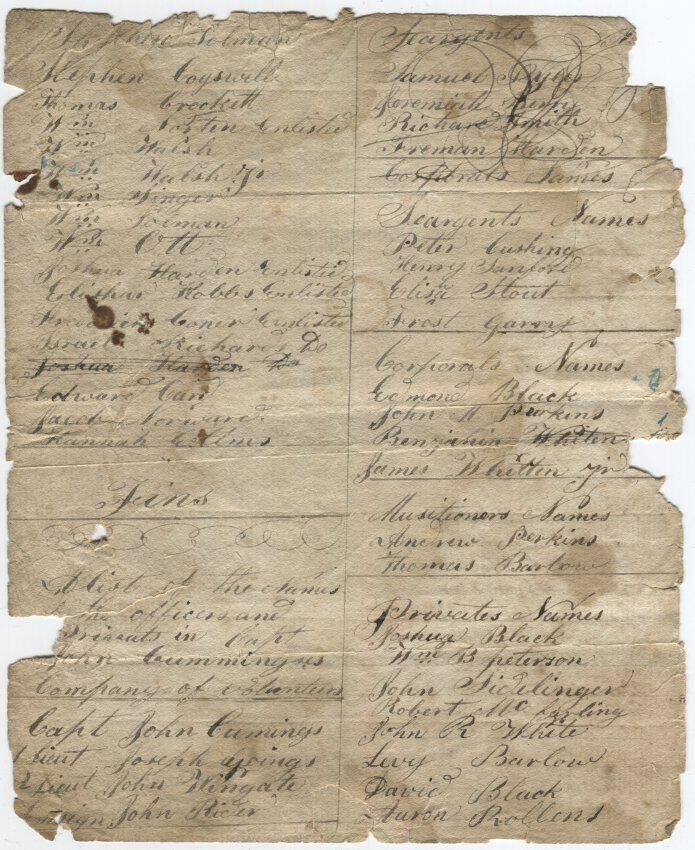 Tolman
Stephen Cogswell
Thomas Crockett
Wm Enlisted
Wm Walsh
Wm Walsh Jr
Wm Winger
Wm Tolman
Wm Ott
Joshua Harden Enlisted
Hobbs Enlisted
Coner Enlisted
Israel Richards Do
Joshua Harden Do
Edward Carr
Jacob
Hannah Holmes
Fins
A list of the Names
of the officers and
Privats in Capt
John Cummings
Company of volunteers
Capt John Cumings
1 Lieut Joseph
2 Lieut John Wingate
Ensign John Rider
Seargents
Samuel
Jeremiah Berry
Richard Smith
Freman Harden
Corporals Names
Seargents Names
Peter Cushing
Henry Sanford
Elisa Stout
Frost
Corporals Names
Edmond Black
John M Perkins
Benjamin Whiten
James Whitten jr
Musitioners Names
Andrew Perkins
Thomas Barlow
Privates Names
Joshua Black
Wm B peterson
John Sidelinger
Robert Mc
John R White
Levy Barlow
David Black
Aaron Rollens